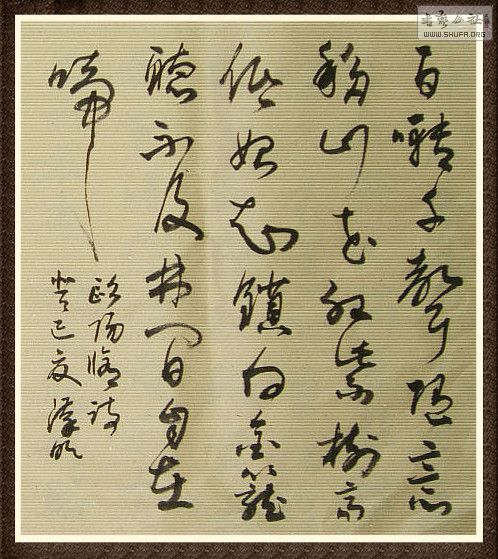 百囀千聲隨意
移山花紅紫樹高
低始知鎖向金籠
聽不及林間自在
啼
歐陽脩詩
癸巳夏
书艺公社
WWW.SHUFA.ORG